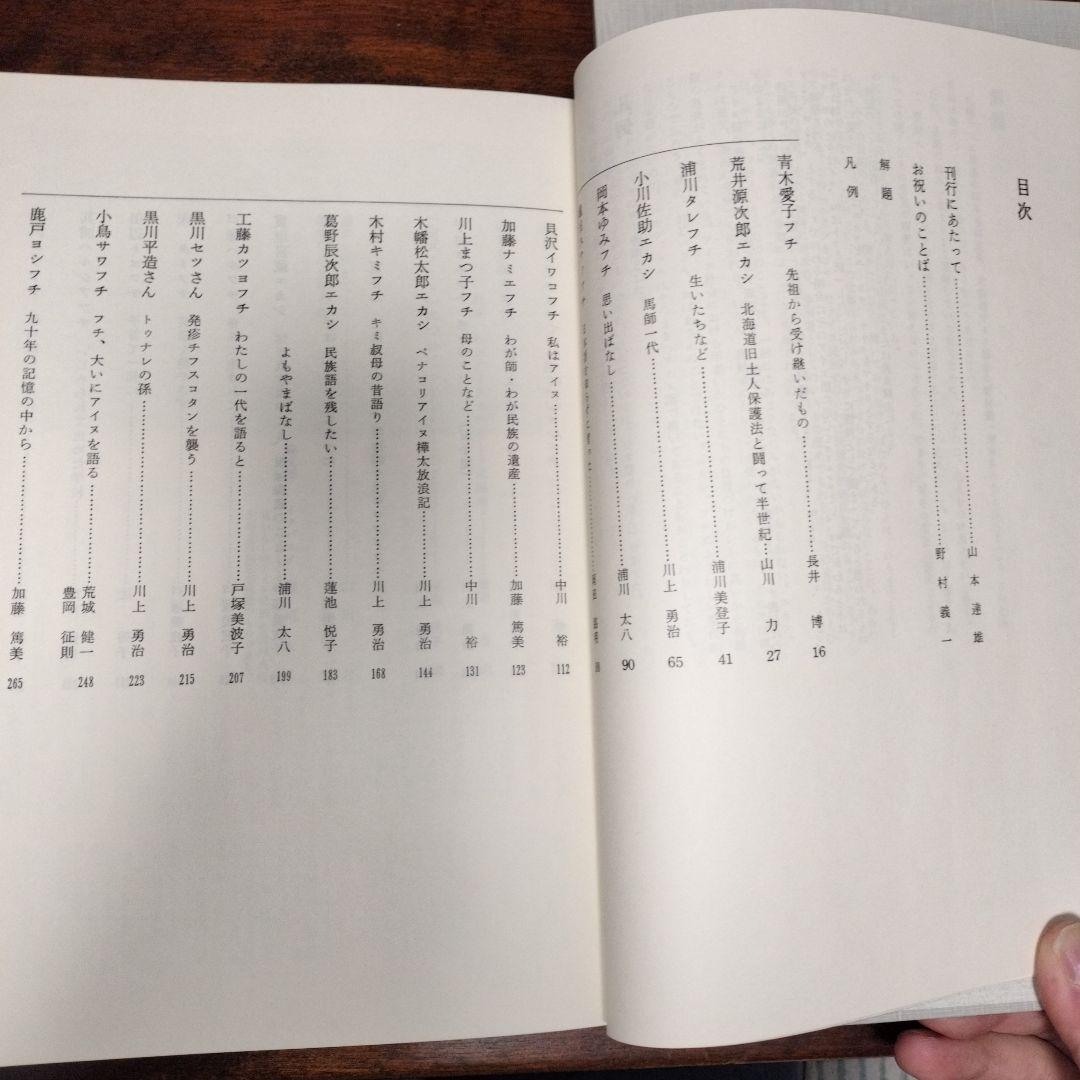 目次
刊行にあたって……………………山本達雄
お祝いのことば……………………野村義一
解題
凡例
青木愛子フチ 先祖から受け継いだもの……………長井 博 16
荒井源次郎エカシ 北海道旧土人保護法と闘って半世紀……山川 力 27
浦川タレフチ 生いたちなど……………………浦川美登子 41
小川佐助エカシ 馬師一代……………………川上 勇治 65
岡本ゆみフチ 思い出ばなし……………………浦川 太八 90
貝沢イワコフチ 私はアイヌ……………………中川 裕 112
加藤ナミエフチ わが師・わが民族の遺産……………加藤 篤美 123
川上まつ子フチ 母のことなど……………………中川 裕 131
木幡松太郎エカシ ペナコリアイヌ樺太放浪記………川上 勇治 144
木村キミフチ キミ叔母の昔語り……………………川上 勇治 168
葛野辰次郎エカシ 民族語を残したい………………蓮池 悦子 183
よもやまばなし……………………浦川 太八 199
工藤カツヨフチ わたしの一代を語ると………………戸塚美波子 207
黒川セツさん 発疹チフスコタンを襲う………………川上 勇治 215
黒川平造さん トゥナレの孫……………………川上 勇治 223
小鳥サワフチ フチ、大いにアイヌを語る……………荒城 健一 豊岡 征則 248
鹿戸ヨシフチ 九十年の記憶の中から………………加藤 篤美 265